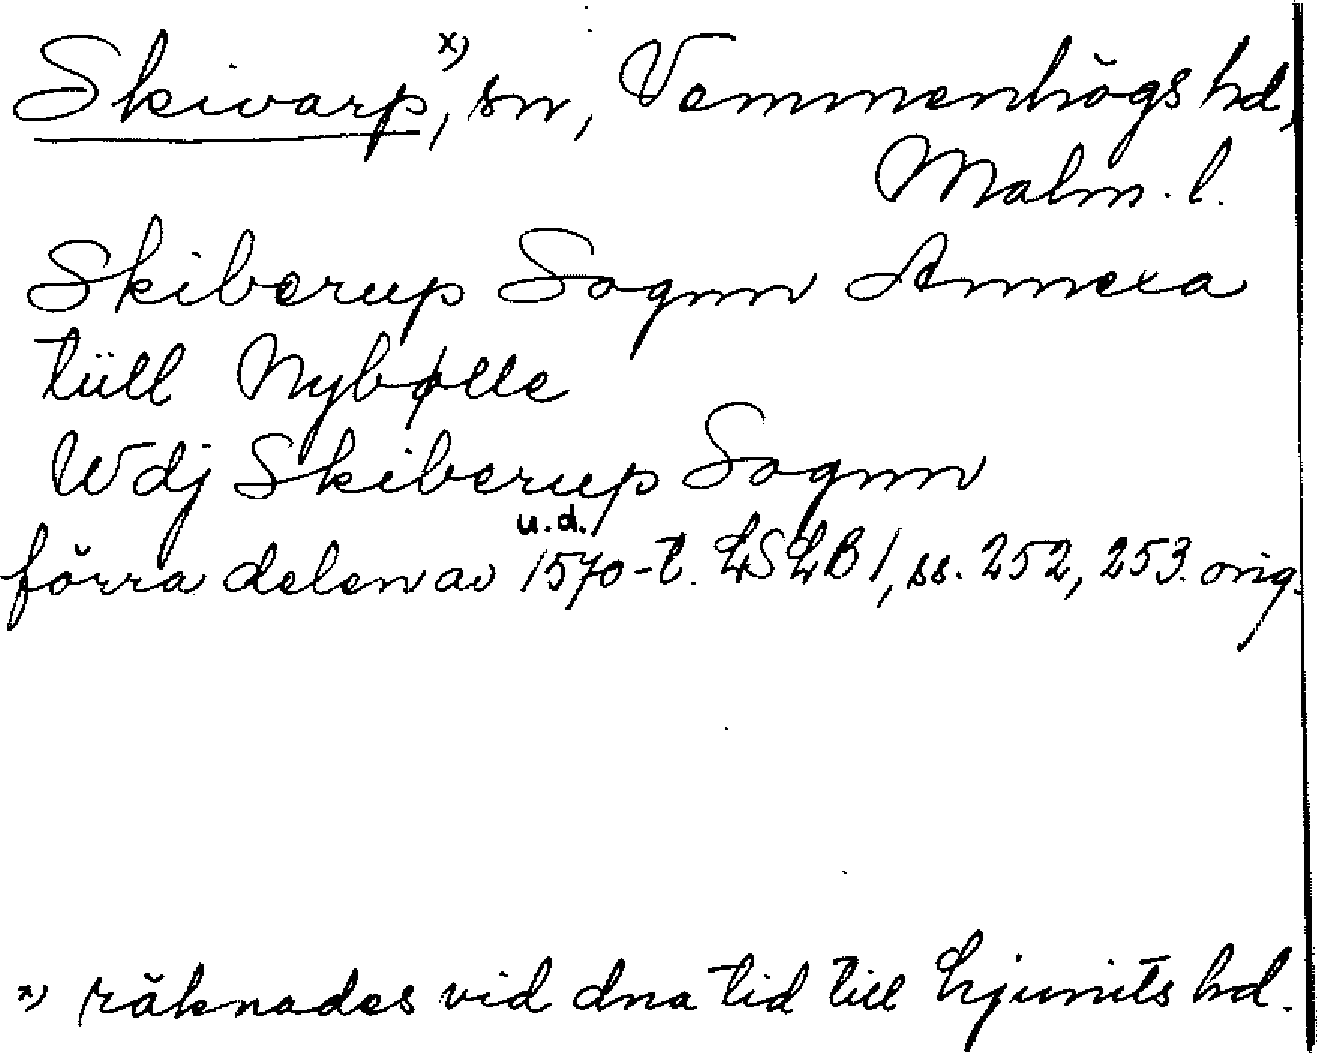 Skivarp, x) sn, Vemmenhögs hd,
Malm. l.
Skiberup Sognn Annexa
tüll Nybølle
Wdj Skiberup Sognn
u.d.
förra delen av 1570-t. LSLB 1, ss. 252, 253. orig.
x) räknades vid dna tid till Ljunits hd.